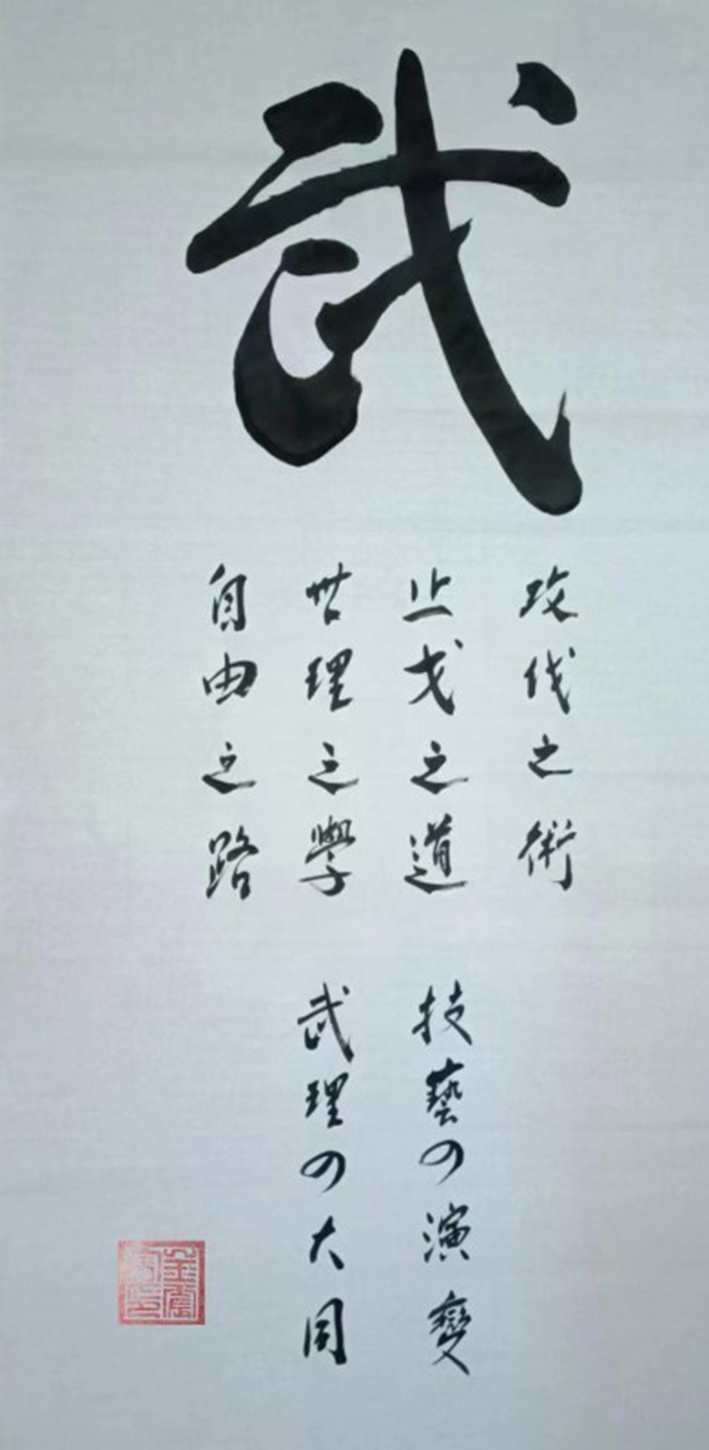 武
攻伐之術
止戈之道
世理之學
自由之路
技藝の演變
武理の大同